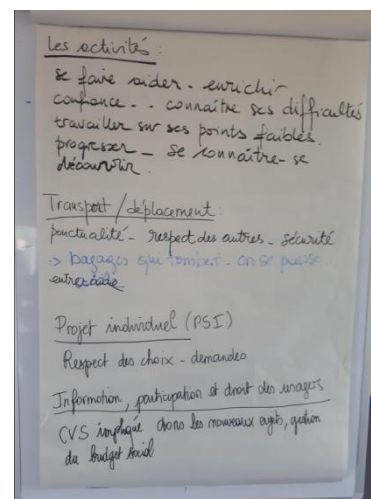 Les activités :
se faire aider - enrichir
confiance - - connaître ses difficultés
travailler sur ses points faibles.
progresser - se connaître - se
découvrir.
Transport / déplacement :
ponctualité - respect des autres - sécurité
-> bagages que tombent - on se pousse
entraide
Projet individuel (PSI)
Respect des choix - demandes
Information, participation et droit des usagers
CVS impliqué dans les nouveaux, gestion
du budget social